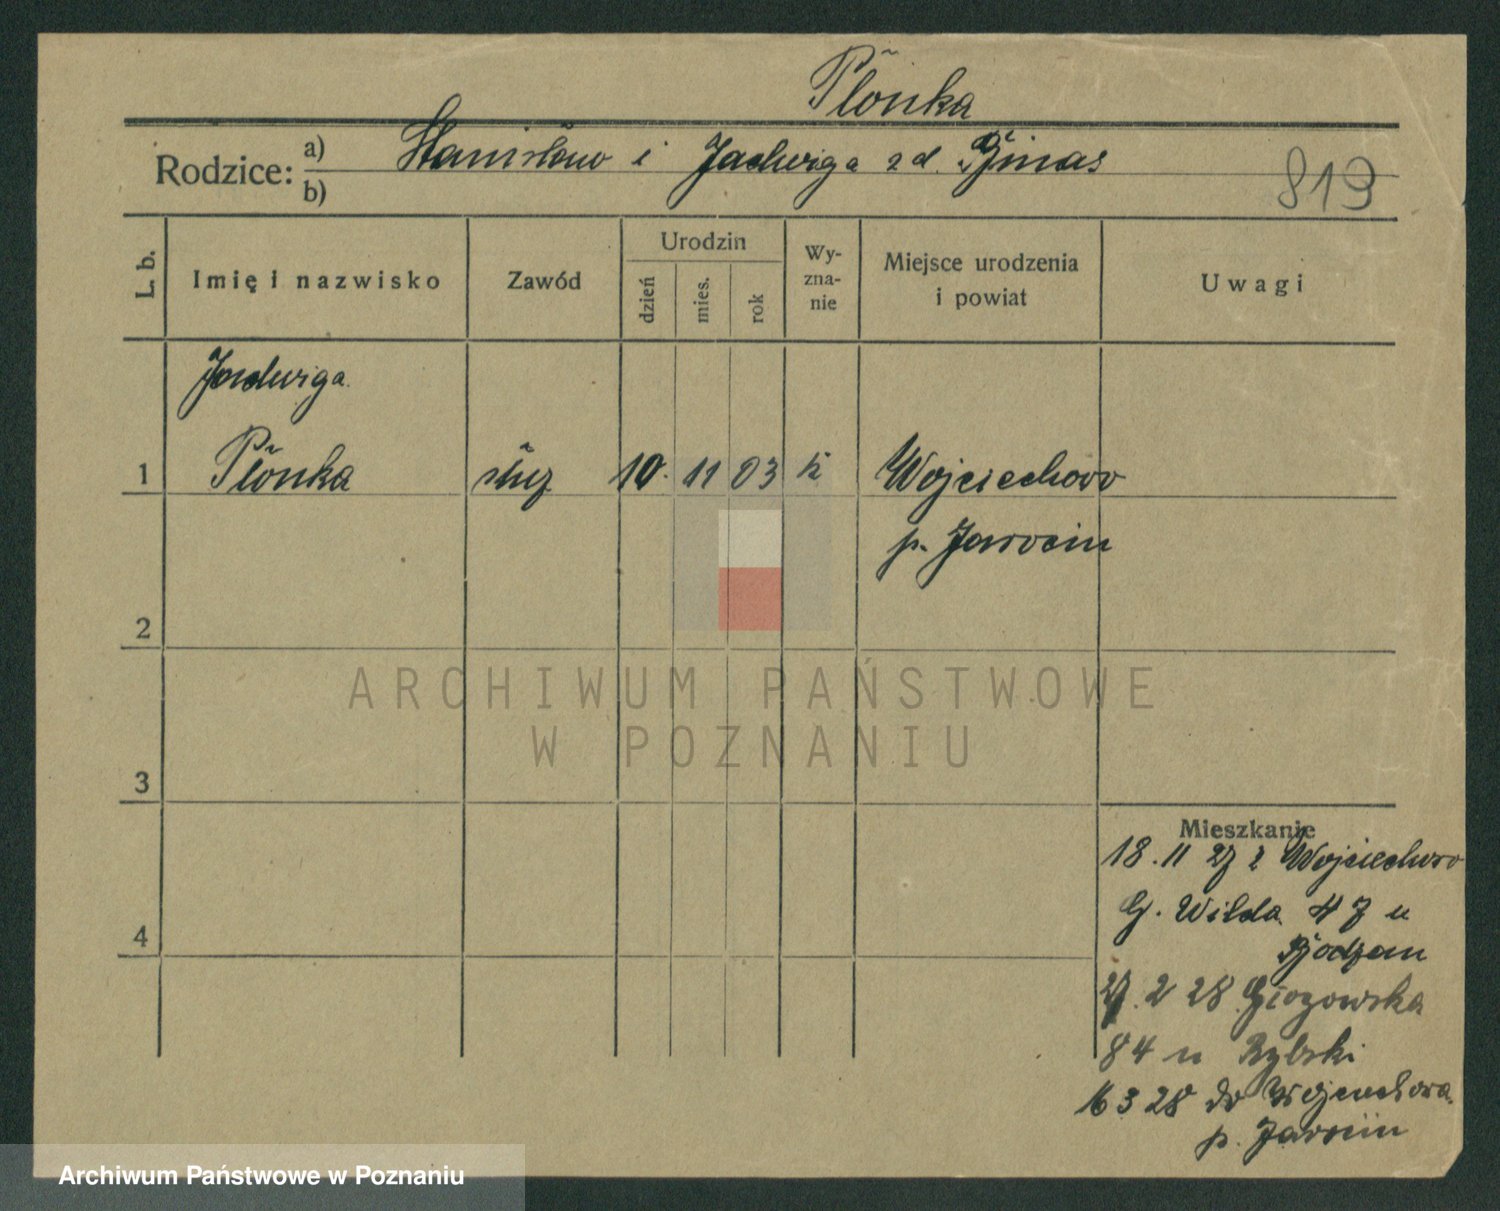 Płonka
Rodzice: a) Stanisław i Jadwiga z d.
b)
819
L. b.
Imię i nazwisko
Zawód
Urodzin
dzień
mies.
rok
Wy-
zna-
nie
Miejsce urodzenia
i powiat
Uwagi
Jadwiga
1 Płonka służ 10. 11 03 k Wojciechowo
p. Jarocin
2
3
4
Mieszkanie
18. 11 27 z Wojciechowo
G. Wilda 47 u
27. 2 28
84 u Rybski
16 3 28 do Wojciechowa
p. Jarocin
ARCHIWUM PAŃSTWOWE
W POZNANIU
Archiwum Państwowe w Poznaniu